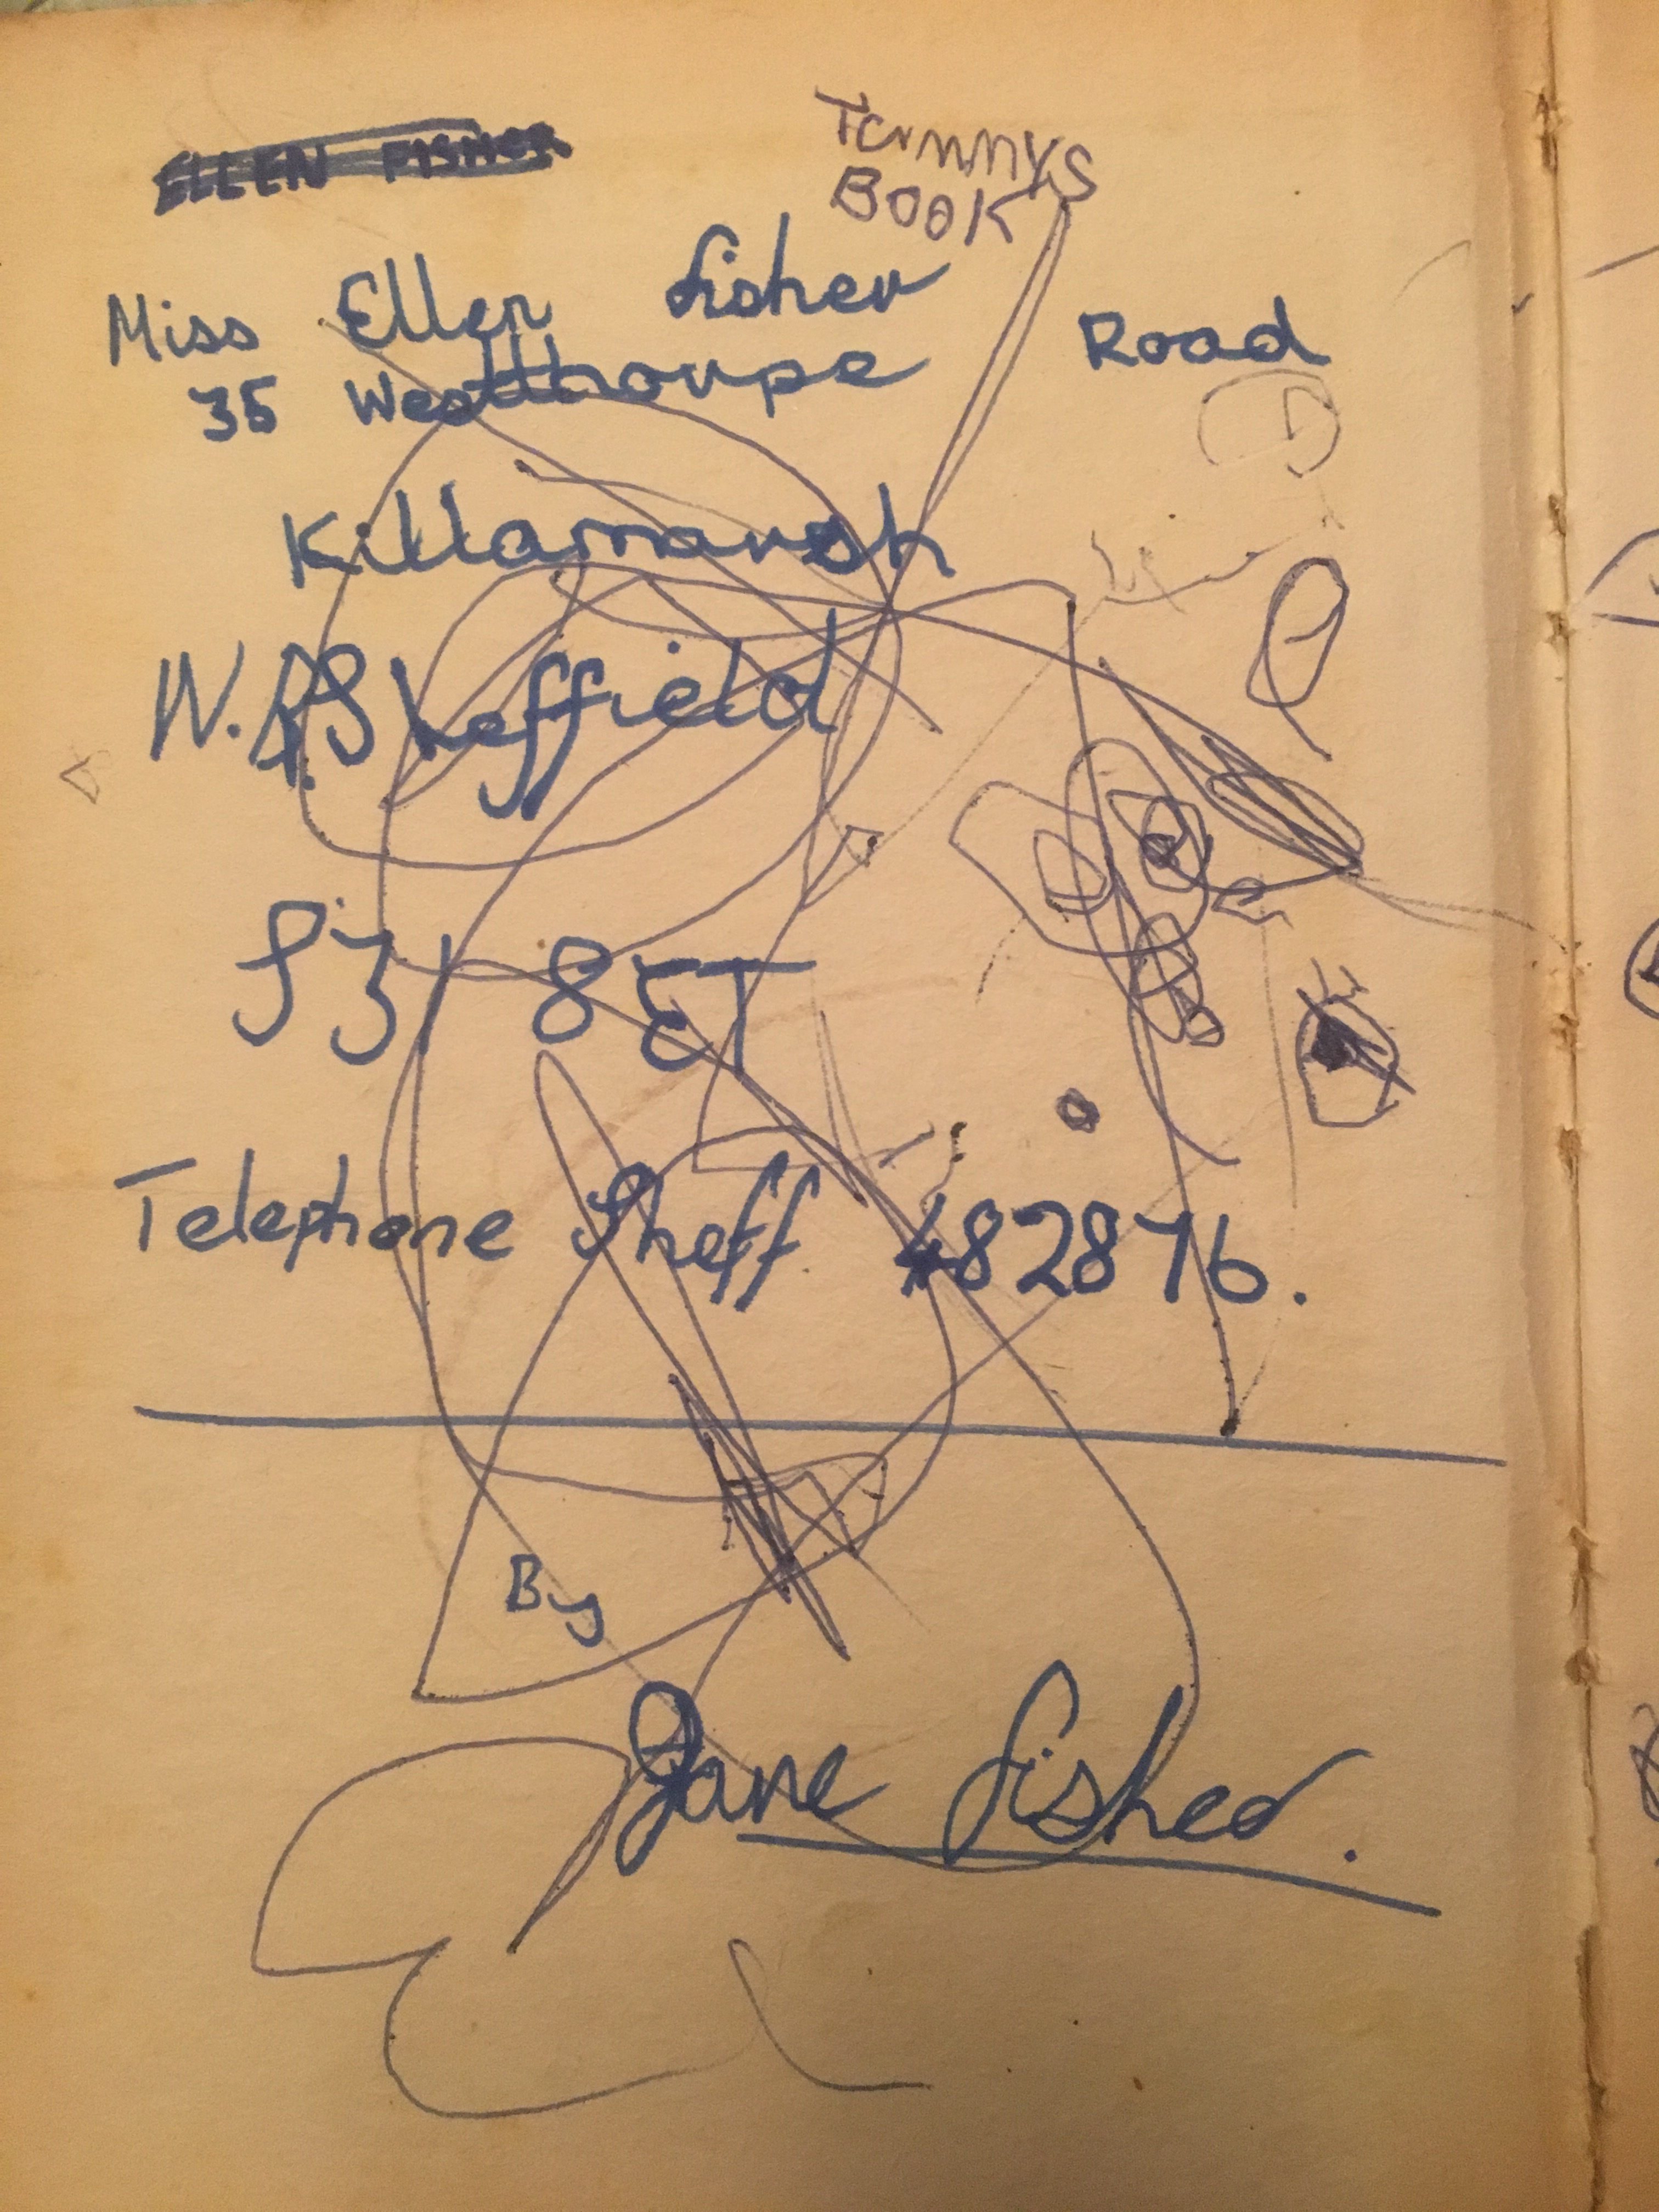 ELLEN FISHER
Tammys
BOOK
Miss Ellen Fisher
35 Westthorpe Road
Killamarsh
N.R Sheffield
S31 8ET
Telephone Sheff. 482876.
By
Jane Fisher.